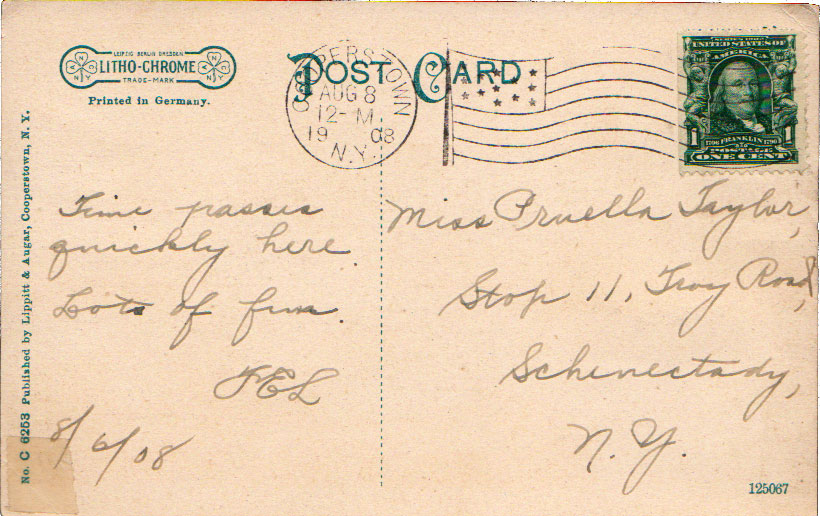 LEIPZIG BERLIN DRESDEN
LITHO-CHROME
TRADE-MARK
Printed in Germany.
POST CARD
COOPERSTOWN
AUG 8
12-M
1908
N.Y.
SERIES 1902
UNITED STATES OF
AMERICA
1706 FRANKLIN 1790
1 POSTAGE 1
ONE CENT
No. C 6253 Published by Lippitt & Augar, Cooperstown, N. Y.
Time passes
quickly here.
Lots of fun.
FEL
8/6/08
Miss Pruella Taylor,
Stop 11, Troy Road,
Schenectady,
N.Y.
125067